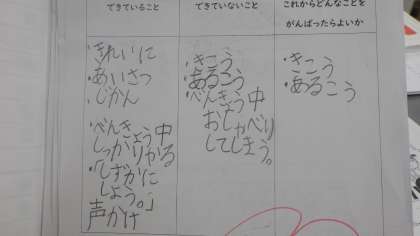 できていること
できていないこと
これからどんなことを
がんばったらよいか
・きれいに
・あいさつ
・じかん
・べんきょう中
しっかりやる
・「しずかに
しよう。」
声かけ
・きこう
・あるこう
・べんきょう中
おしゃべり
してしまう。
・きこう
・あるこう